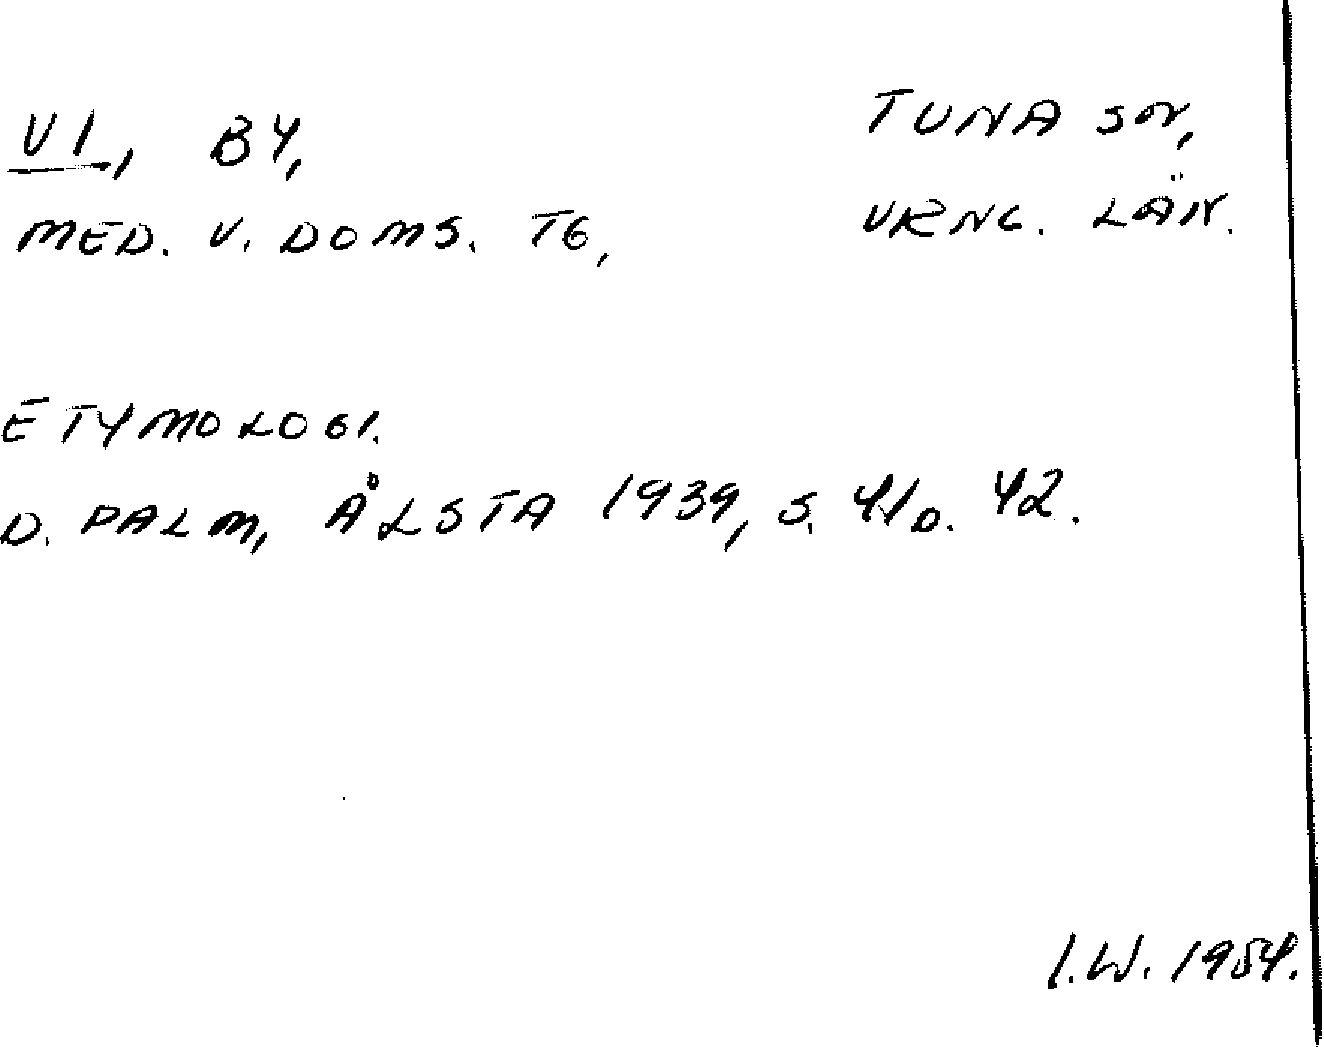 VI, BY,
TUNA SN,
MED. V. DOMS. TG,
VRNL. LÄN.
ETYMOLOGI.
D. PALM, ÅLSTA 1939, S. 41 o. 42.
I.W. 1954.